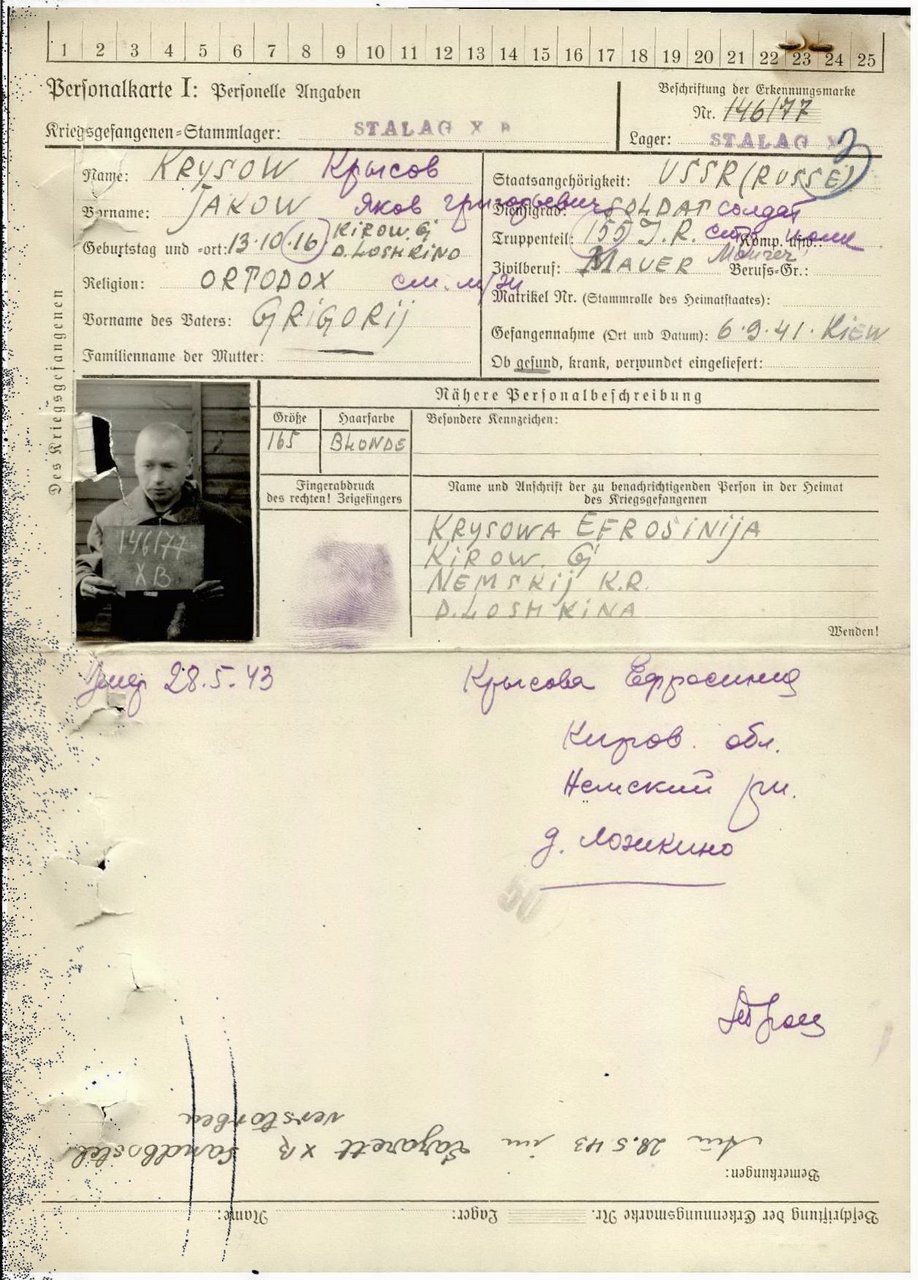 1 2 3 4 5 6 7 8 9 10 11 12 13 14 15 16 17 18 19 20 21 22 23 24 25
Personalkarte I: Personelle Angaben
Kriegsgefangenen-Stammlager: STALAG X B
Beschriftung der Erkennungsmarke
Nr. 146/77
Lager: STALAG X
Des Kriegsgefangenen
Name: KRYSOW Крысов
Vorname: JAKOW Яков Григорьевич
Geburtstag und -ort: 13.10.16 KIROW. G
D. LOSHKINO
Religion: ORTODOX см. м/жи
Vorname des Vaters: GRIGORIJ
Familienname der Mutter:
Staatsangehörigkeit: USSR (RUSSE)
Dienstgrad: SOLDAT солдат
Truppenteil: 155 J.R. Komp. usw.: полк
Zivilberuf: MAUER Maurer Berufs-Gr.:
Matrikel Nr. (Stammrolle des Heimatstaates):
Gefangennahme (Ort und Datum): 6.9.41. KIEW
Ob gesund, krank, verwundet eingeliefert:
146/77
X B
Nähere Personalbeschreibung
Größe Haarfarbe Besondere Kennzeichen:
165 BLONDE
Fingerabdruck
des rechten! Zeigefingers
Name und Anschrift der zu benachrichtigenden Person in der Heimat
des Kriegsgefangenen
KRYSOWA EFROSINIJA
KIROW. G
NEMSKIJ K.R.
D. LOSHKINA
Wenden!
Умер 28.5.43
Крысова Ефросиния
Киров. обл.
Немский рн.
д. Ложкино
50
Bemerkungen:
Am 28.5.43 im Lazarett XB Sandbostel
verstorben
Beschriftung der Erkennungsmarke Nr. Lager: Name: